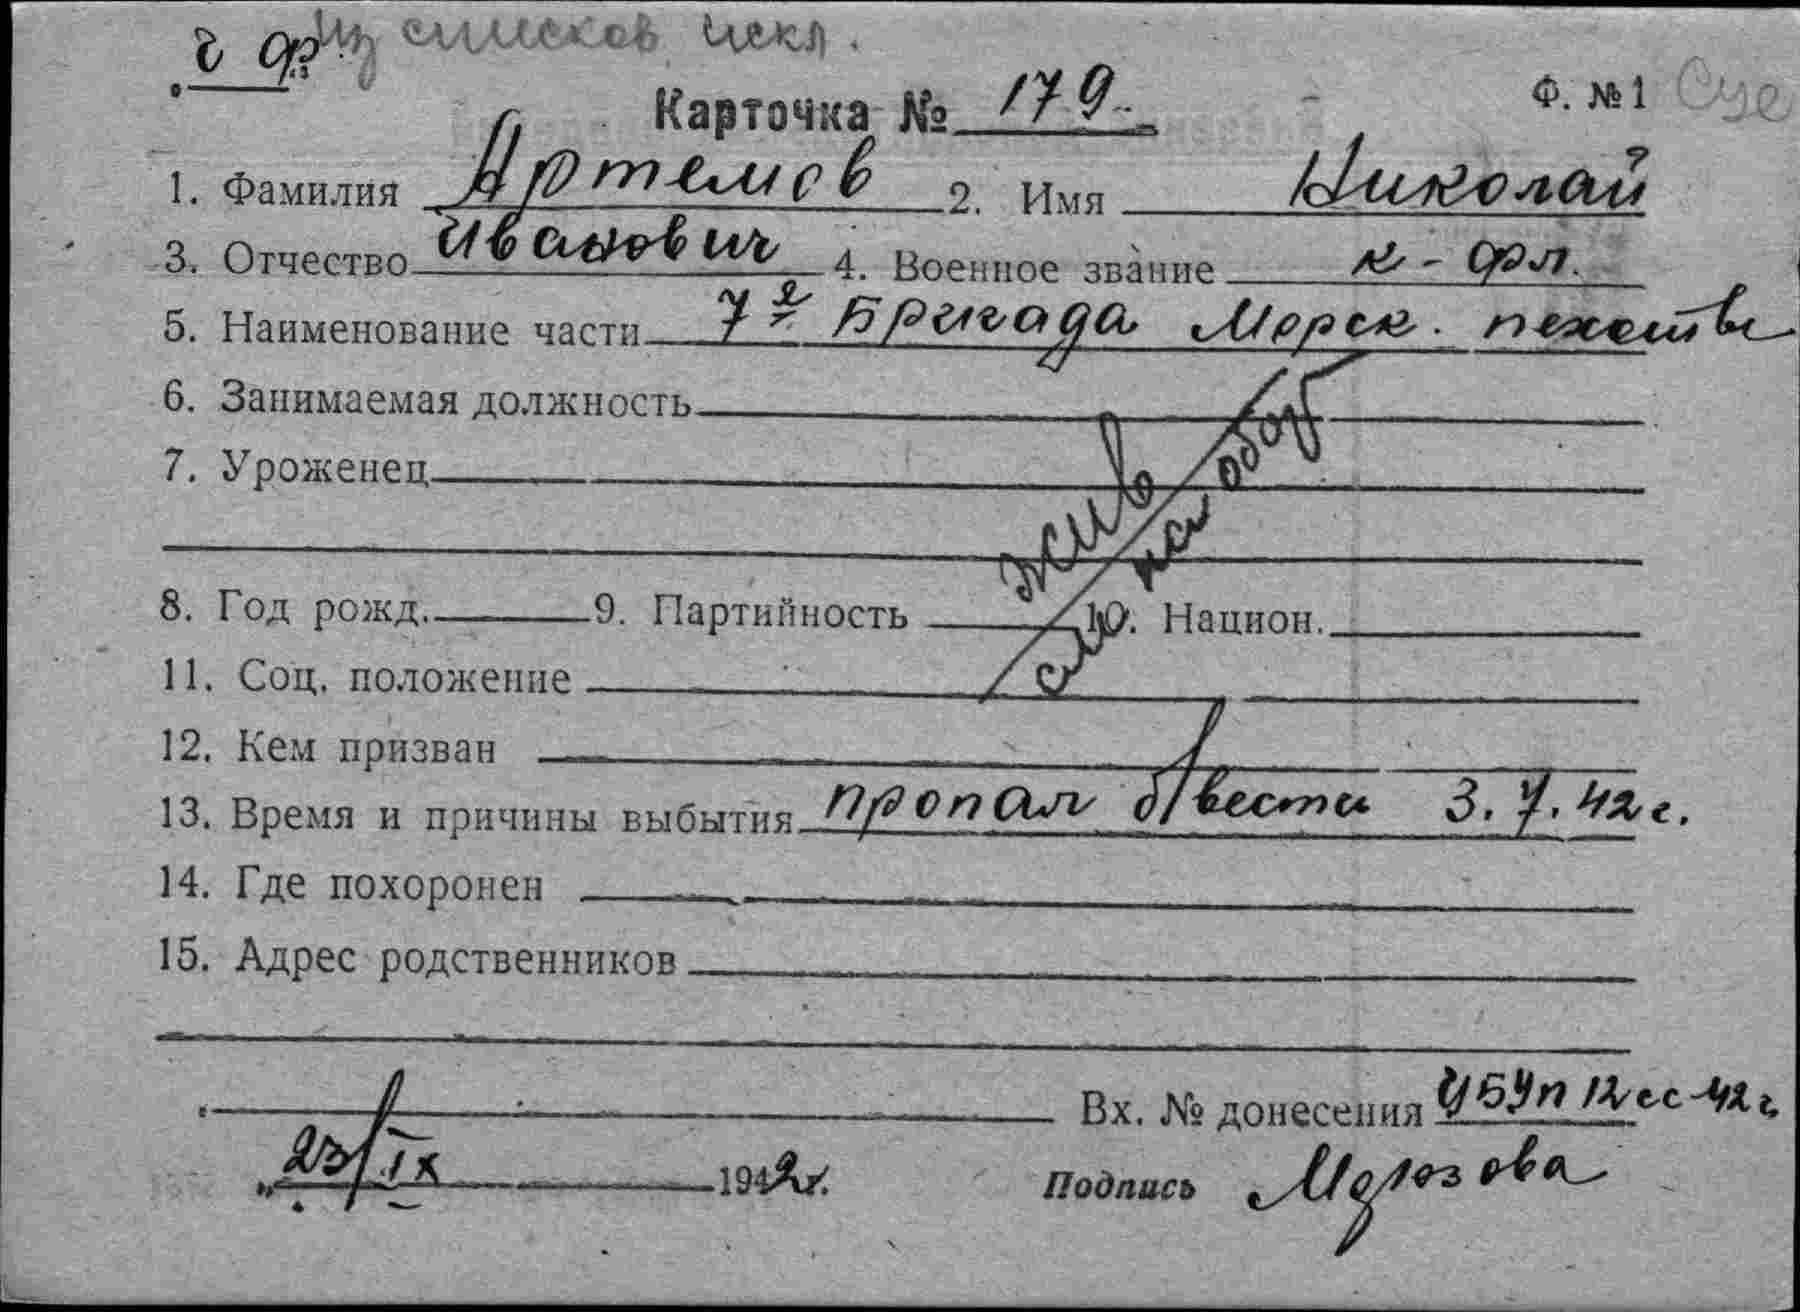 ч ф. Из списков искл.
Карточка № 179 Ф. № 1
1. Фамилия Артемов 2. Имя Николай
3. Отчество Иванович 4. Военное звание к-фл.
5. Наименование части 7я Бригада Морск. пехоты
6. Занимаемая должность
7. Уроженец
жив
см. на обор
8. Год рожд. 9. Партийность 10. Национ.
11. Соц. положение
12. Кем призван
13. Время и причины выбытия пропал б/вести 3.7.42 г.
14. Где похоронен
15. Адрес родственников
Вх. № донесения 12сс-42 г.
„23/IX 1942 г.
Подпись Морозова